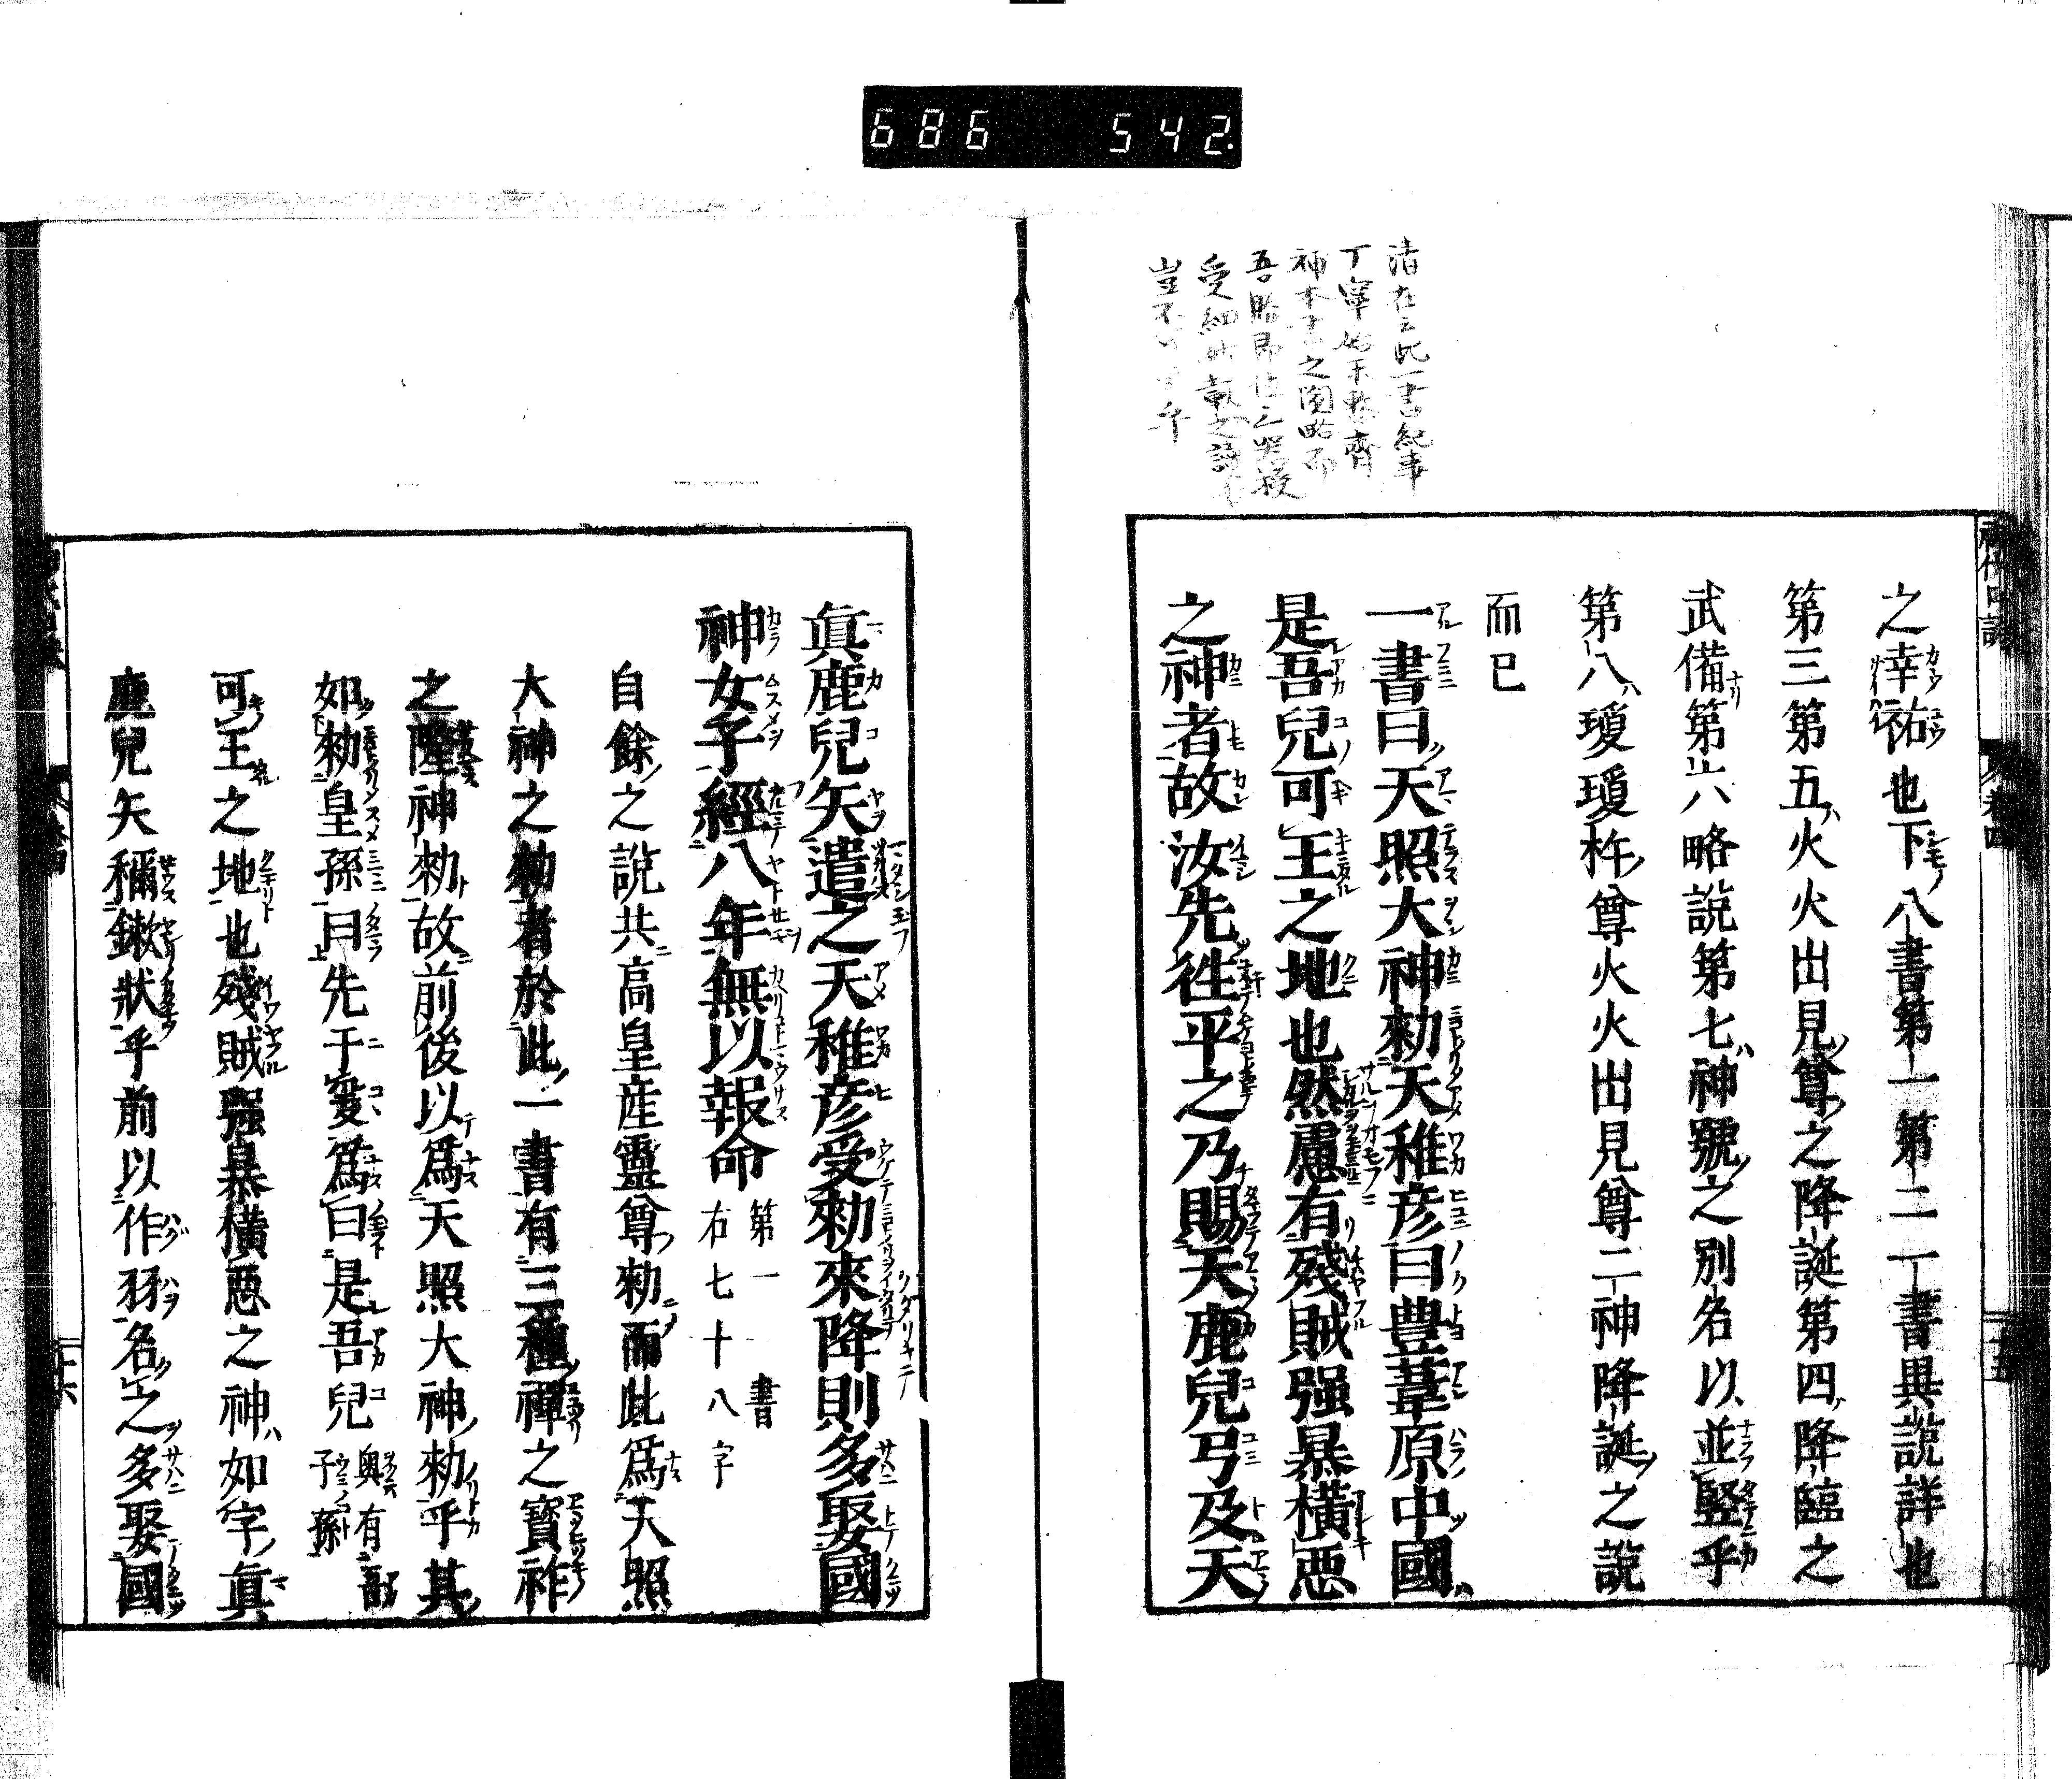 686 542.
清在云此一書紀事
丁寧始末整齊
神本書之闕略而
受細
豈不 乎
之幸祐也下八書第一第二一書與說詳也
第三第五火火出見尊之降誕第四降臨之
武備第六略說第七神號之別名以並竪乎
第八瓊瓊杵尊火火出見尊二神降誕之說
而已
一書曰天照大神勑天稚彦曰豊葦原中國
是吾兒可王之地也然慮有殘賊强暴横惡
之神者故汝先徃平之乃賜天鹿兒弓及天
眞鹿兒矢遣之天稚彦受勑來降則多娶國
神女子經八年無以報命 第一書
右七十八字
自餘之說共高皇産靈尊勑而此爲天照
大神之勑者於此一書有三種禪之寶祚
之隆神勑故前後以爲天照大神勑乎其
如勑皇孫曰先于爰爲曰是吾兒 與有
子孫
可王之地也殘賊强暴横惡之神如字眞
鹿兒矢稱鏉狀乎前以作羽名之多娶國